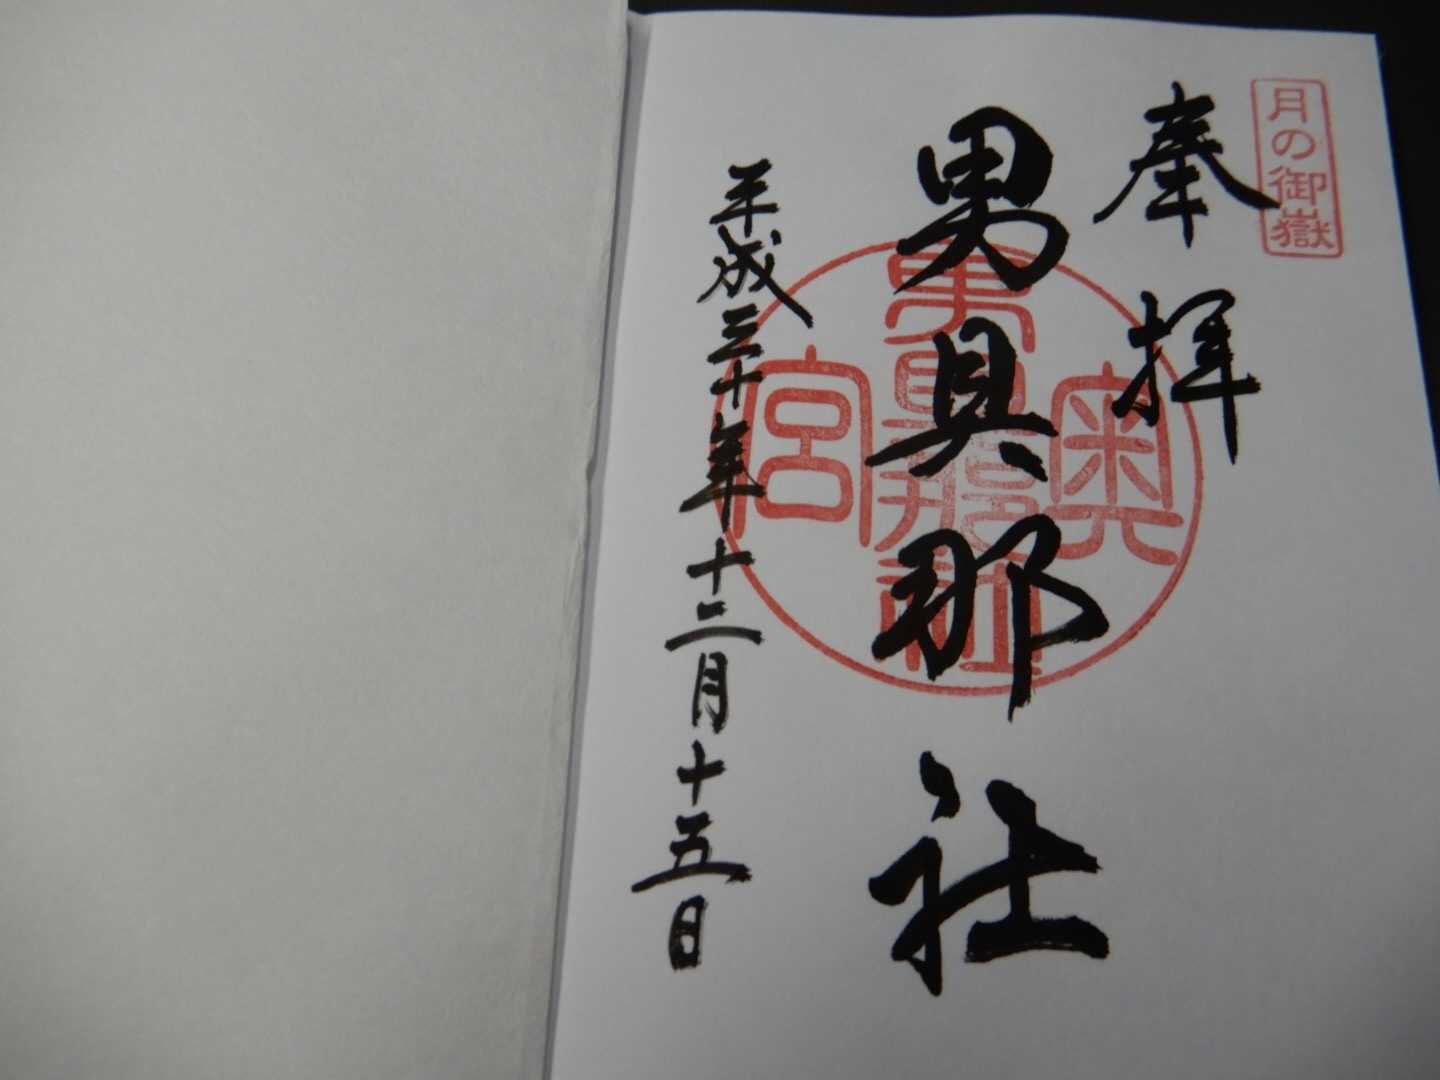 月の御嶽
奉拝
男具那社
奥宮
男具那社
平成三十年十二月十五日